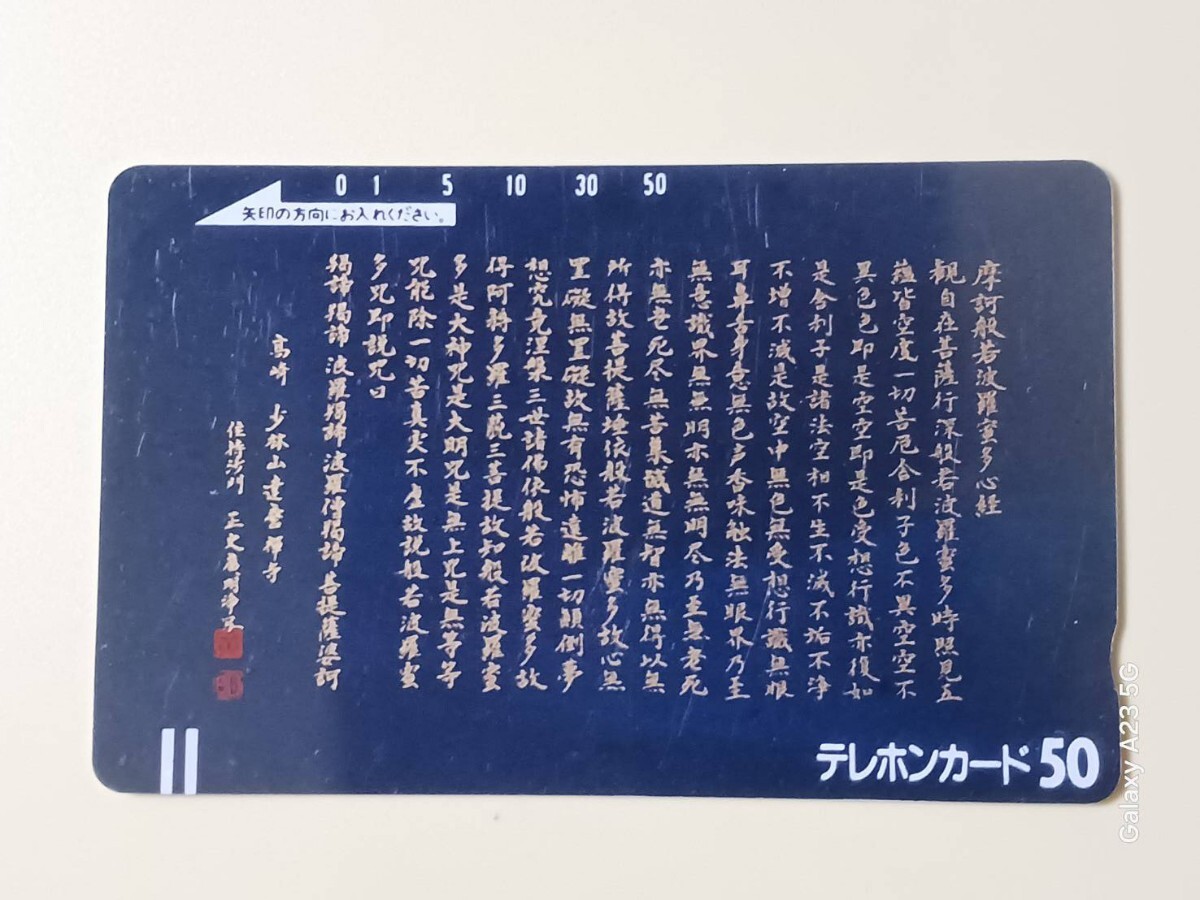 0 1 5 10 30 50
矢印の方向にお入れください。
摩訶般若波羅蜜多心経
觀自在菩薩行深般若波羅蜜多時照見五
蘊皆空度一切苦厄舎利子色不異空空不
異色色即是空空即是色受想行識亦復如
是舎利子是諸法空相不生不滅不垢不浄
不増不減是故空中無色無受想行識無眼
耳鼻舌身意無色声香味触法無眼界乃至
無意識界無無明亦無無明尽乃至無老死
亦無老死尽無苦集滅道無智亦無得以無
所得故菩提薩埵依般若波羅蜜多故心無
罣礙無罣礙故無有恐怖遠離一切顛倒夢
想究竟涅槃三世諸佛依般若波羅蜜多故
得阿耨多羅三藐三菩提故知般若波羅蜜
多是大神咒是大明咒是無上咒是無等等
咒能除一切苦真実不虚故説般若波羅蜜
多咒即説咒曰
羯諦 羯諦 波羅羯諦 波羅僧羯諦 菩提薩婆訶
高崎 少林山達磨禅寺
住持沙門
テレホンカード50
Galaxy A23 5G